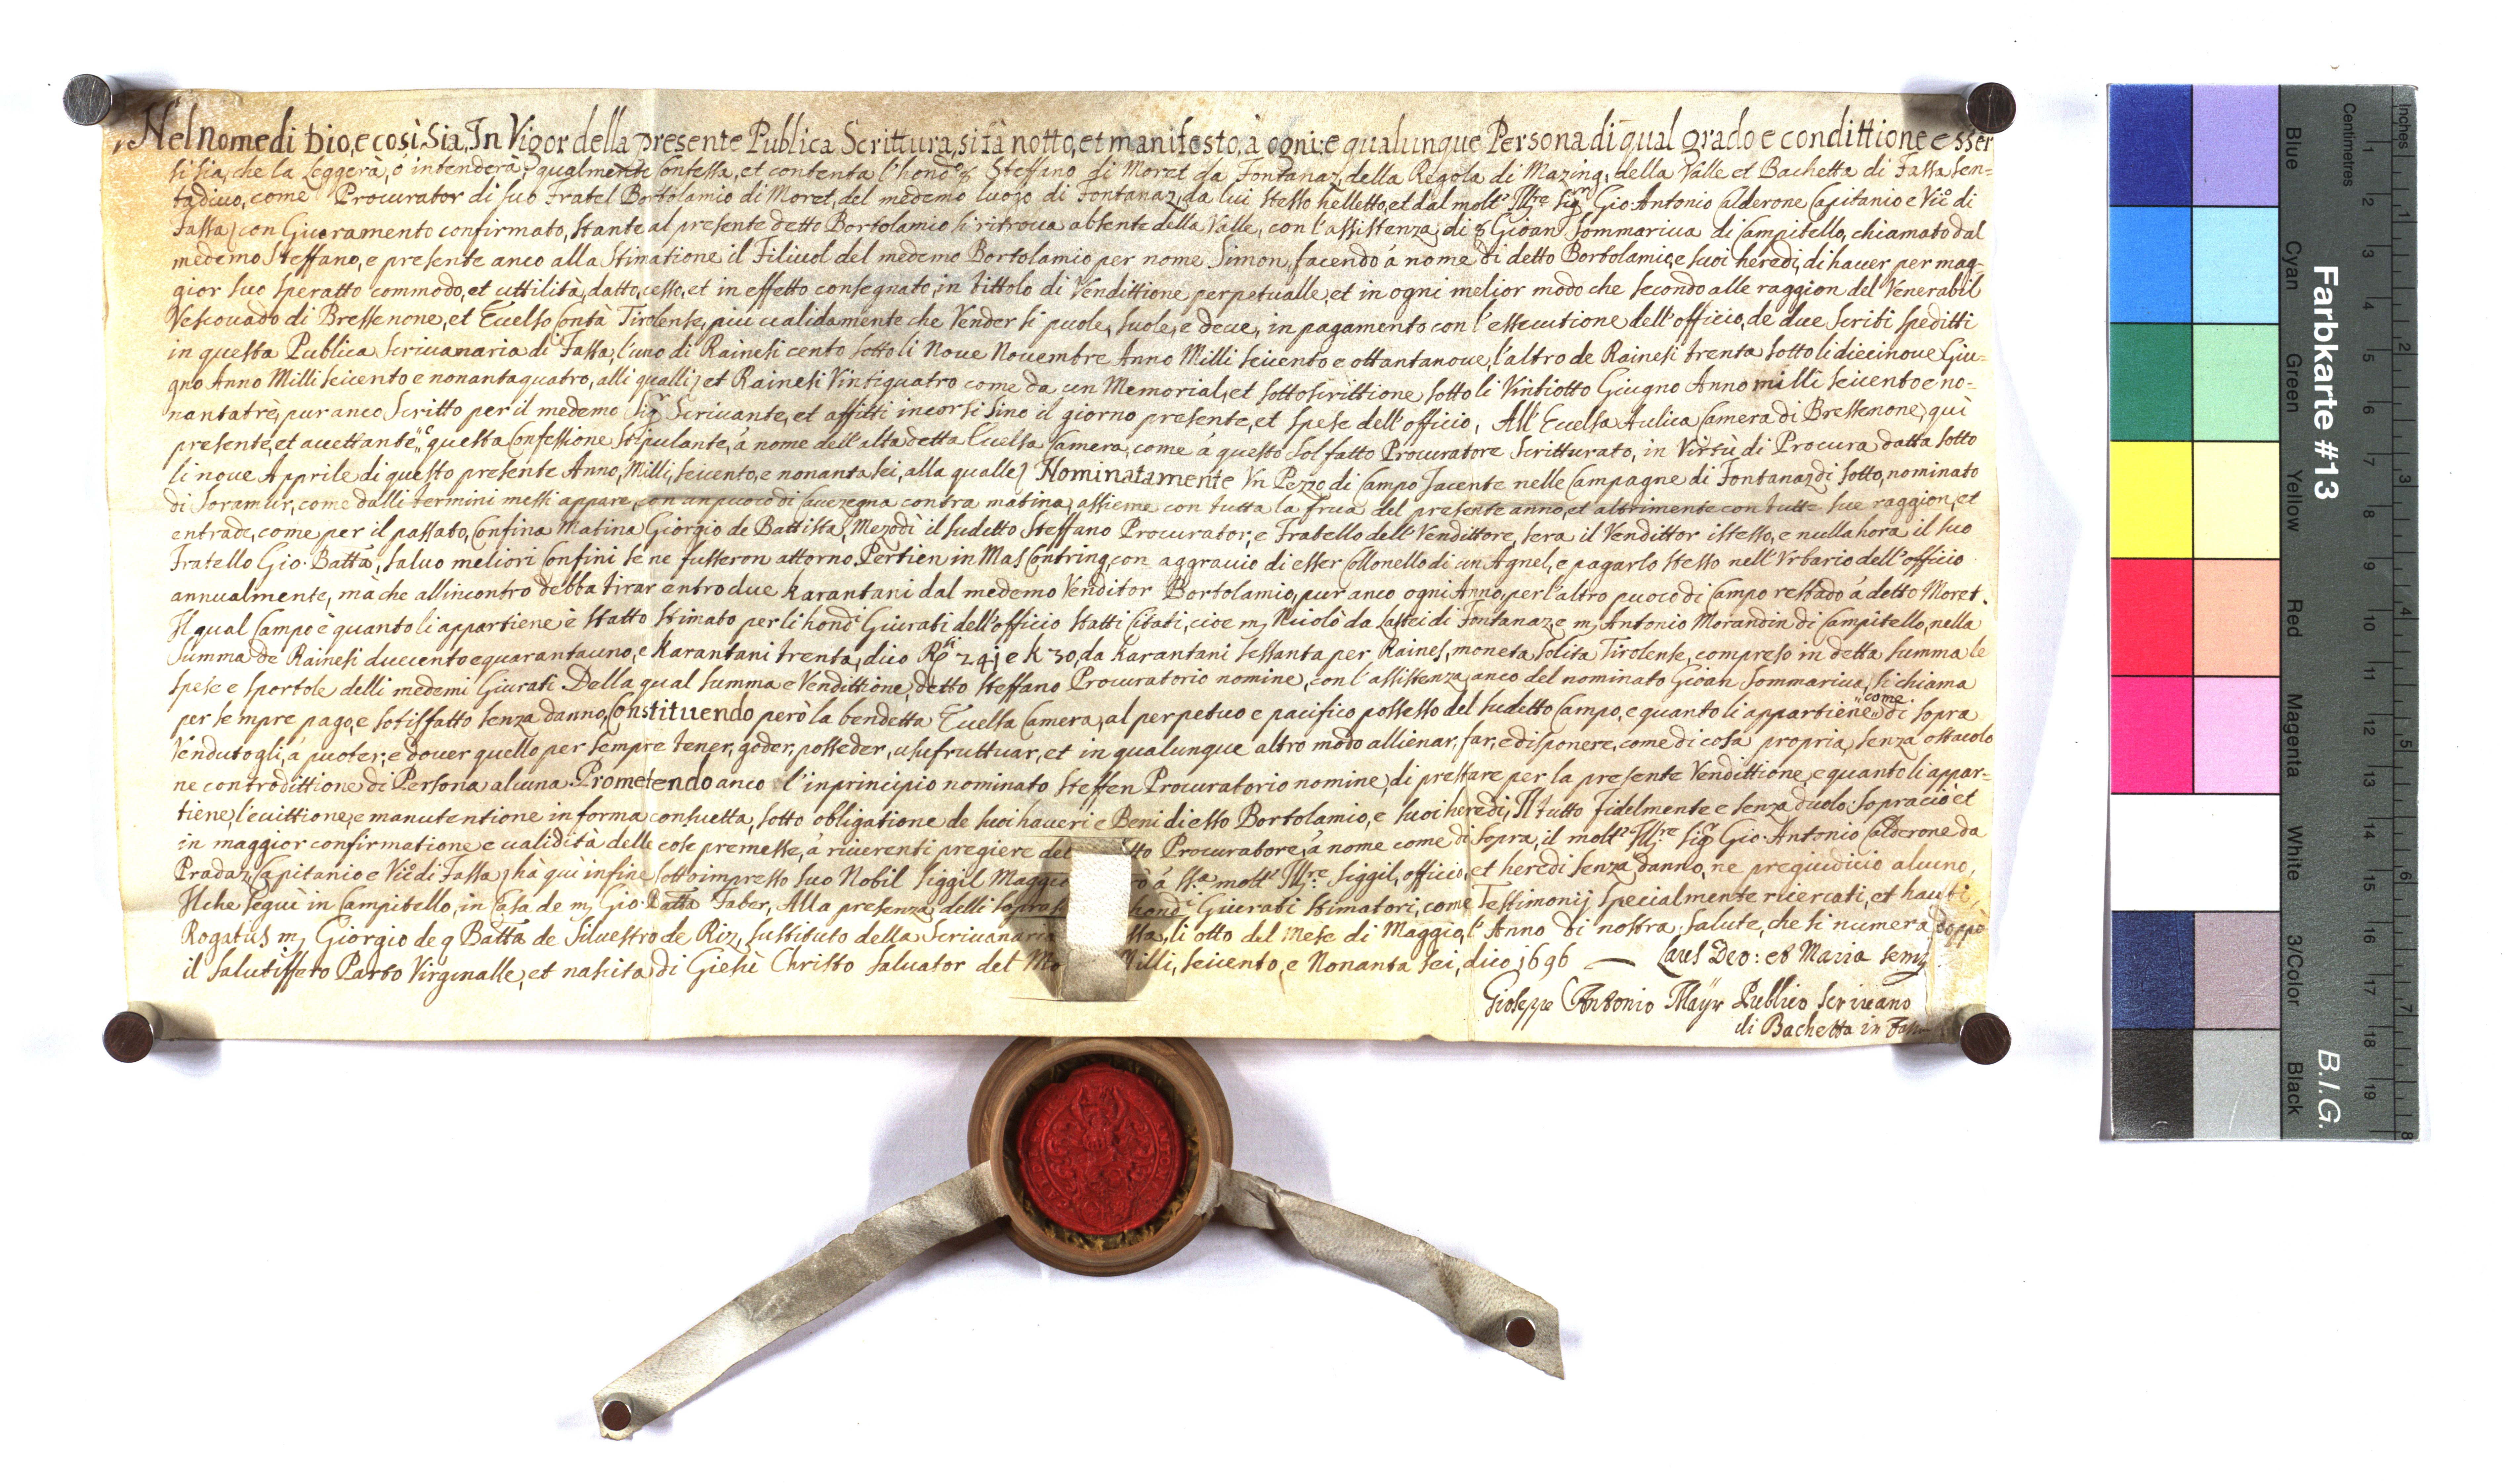 Nel nome di Dio, e così Sia, In Vigor della presente Publica Scrittura, si fà notto, et manifesto, à ogni e qualunque Persona di qual grado e condittione esser
si sia, che la Leggerà, ò intenderà, qualmente Confessa, et contenta l'hond: Steffano di Moret da Fontanaz, della Regola di Mazing, della Valle et Bachetta di Fassa Con=
tadiuo, come Procurator di suo Fratel Bortolamio di Moret, del medemo luogo di Fontanaz, da lui stesso helletto, et dal molto Illre Sigr Gio: Antonio Calderone Capitanio e Vic: di
Fassa con Giuramento confirmato, stante al presente detto Bortolamio si ritroua absente della Valle, con l'assistenza di Gioan Sommariua di Campitello, chiamato dal
medemo Steffano, e presente anco alla Stimatione il Filiuol del medemo Bortolamio per nome Simon, facendo à nome di detto Bortolamio, e suoi heredi, di hauer per mag=
gior suo speratto commodo, et uttilità, datto, cesso, et in effetto consegnato, in tittolo di Vendittione perpetualle, et in ogni melior modo che secondo alle raggion del Venerabil
Vescouado di Bressenone, et Excelso Contà Tirolense, piu ualidamente che Vender si puole, suole, e deue, in pagamento con l'essecutione dell'officio, de due Scriti speditti
in questa Publica Scriuanaria di Fassa, l'uno di Rainesi cento sotto li Noue Nouembre Anno Milli seicento e ottantanoue, l'altro de Rainesi trenta sotto li diecinoue Giu=
gno Anno Milli seicento e nonantaquatro, alli qualli, et Rainesi Vintiquatro come da un Memorial, et sottoscrittione sotto li Vintiotto Giugno Anno milli seicento e no=
nantatrè, pur anco Scritto per il medemo Sigr Scriuante, et affitti incorsi sino il giorno presente, et spese dell'officio, All'Excelsa Aulica Camera di Bressenone, quì
presente, et accettante questa Confessione stipulante, à nome dell'alta detta Excelsa Camera, come à questo sol fatto Procuratore Scritturato, in Virtù di Procura datta sotto
li noue Apprile di questo presente Anno, Milli, seicento, e nonanta sei, alla qualle Nominatamente Vn Pezzo di Campo Jacente nelle Campagne di Fontanaz di sotto, nominato
di Soramur, come dalli termini messi appare, con un puoco di Cauezegna contra matina, assieme con tutta la frua del presente anno, et altrimente con tutte sue raggion, et
entrade, come per il passato, Confina Matina Giorgio de Battista, Mezodì il sudetto Steffano Procurator, e Fratello dell'Vendittore, sera il Vendittor istesso, e nulla hora il suo
Fratello Gio: Batta, saluo meliori Confini se ne fusseron attorno. Pertien in Mas Contring, con aggrauio di esser Collonello di un Agnel, e pagarlo stesso nell'Vrbario dell'officio
annualmente, mà che all'incontro debba tirar entro due Karantani dal medemo Venditor Bortolamio, pur anco ogni Anno, per l'altro puoco di Campo restado à detto Moret.
Il qual Campo è quanto li appartiene è statto stimato per li hond: Giurati dell'officio statti Citati, cioe mj Nicolò da Lastei di Fontanaz, e mj Antonio Morandin di Campitello, nella
Summa de Rainesi duecento e quarantauno, e Karantani trenta, dico Rsi 241 e k 30, da Karantani sessanta per Raines, moneta solita Tirolense, compreso in detta summa le
spese e sportole delli medemi Giurati. Della qual summa e Vendittione, detto Steffano Procuratorio nomine, con l'assistenza anco del nominato Gioan Sommariua, si chiama
per sempre pago, e sotisfatto senza danno, Constituendo però la bendetta Excelsa Camera, al perpetuo e pacifico possesso del sudetto Campo, e quanto li appartiene come di sopra
Vendutogli, à puoter, e douer quello per sempre tener, goder, posseder, usufruttuar, et in qualunque altro modo allienar, far, e disponere, come di cosa propria, senza ostacolo
ne contradittione di Persona alcuna. Prometendo anco l'inprincipio nominato Steffen Procuratorio nomine, di prestare per la presente Vendittione, e quanto li appar=
tiene, l'euittione, e manutentione in forma consuetta, sotto obligatione de suoi haueri e Beni di esso Bortolamio, e suoi heredi, Il tutto fidelmente e senza duolo. Sopraciò et
in maggior confirmatione e ualidità delle cose premesse, à riuerenti pregiere del tto Procuratore, à nome come di sopra, il molto Illre Sigr Gio: Antonio Calderone da
Pradaz, Capitanio e Vic: di Fassa, hà quì infine sottoimpresso suo Nobil Siggil Maggio rò à molto Illre Siggil, officio, et heredi senza danno, ne pregiudicio alcuno,
Il che seguì in Campitello, in Casa de mj Gio: Batta Faber, Alla presenza delli sopra hond: Giurati stimatori, come Testimonij specialmente ricercati, et hauti,
Rogatus mj Giorgio de q Batta de Siluestro de Riz, sustituto della Scriuanaria ssa, li otto del Mese di Maggio, l'Anno di nostra salute, che si numera doppò
il salutiffero Parto Virginalle, et nascita di Giesù Christo saluator del Mo Milli, seicento, e Nonanta sei, dico 1696 — Laus Deo: et Maria sem
Gioseppe Antonio Mayr Publico Scriuano
di Bachetta in Fassa
Farbkarte #13
B.I.G.
Inches 1 2 3 4 5 6 7 8
Centimetres 1 2 3 4 5 6 7 8 9 10 11 12 13 14 15 16 17 18 19
Blue Cyan Green Yellow Red Magenta White 3/Color Black